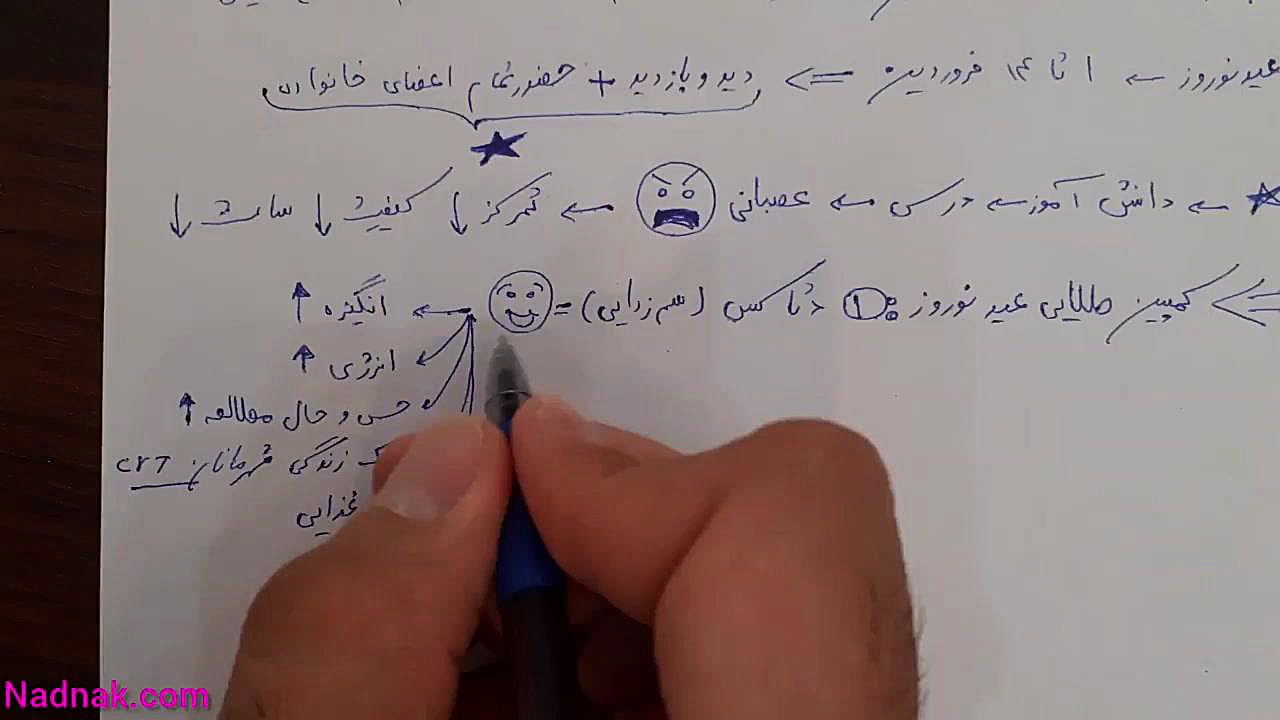 عید نوروز ← ۱ تا ۱۴ فروردین <= دید و بازدید + حضور تمام اعضای خانواده
★ ← دانش آموز ← درس ← عصبانی ← تمرکز ↓ کیفیت ↓ ساعت ↓
<= کمپین طلایی عید نوروز ①: دتاکس (سم زدایی) = ← انگیزه ↑
انرژی ↑
حس و حال مطالعه ↑
زندگی قهرمانان CRT
غذایی
Nadnak.com